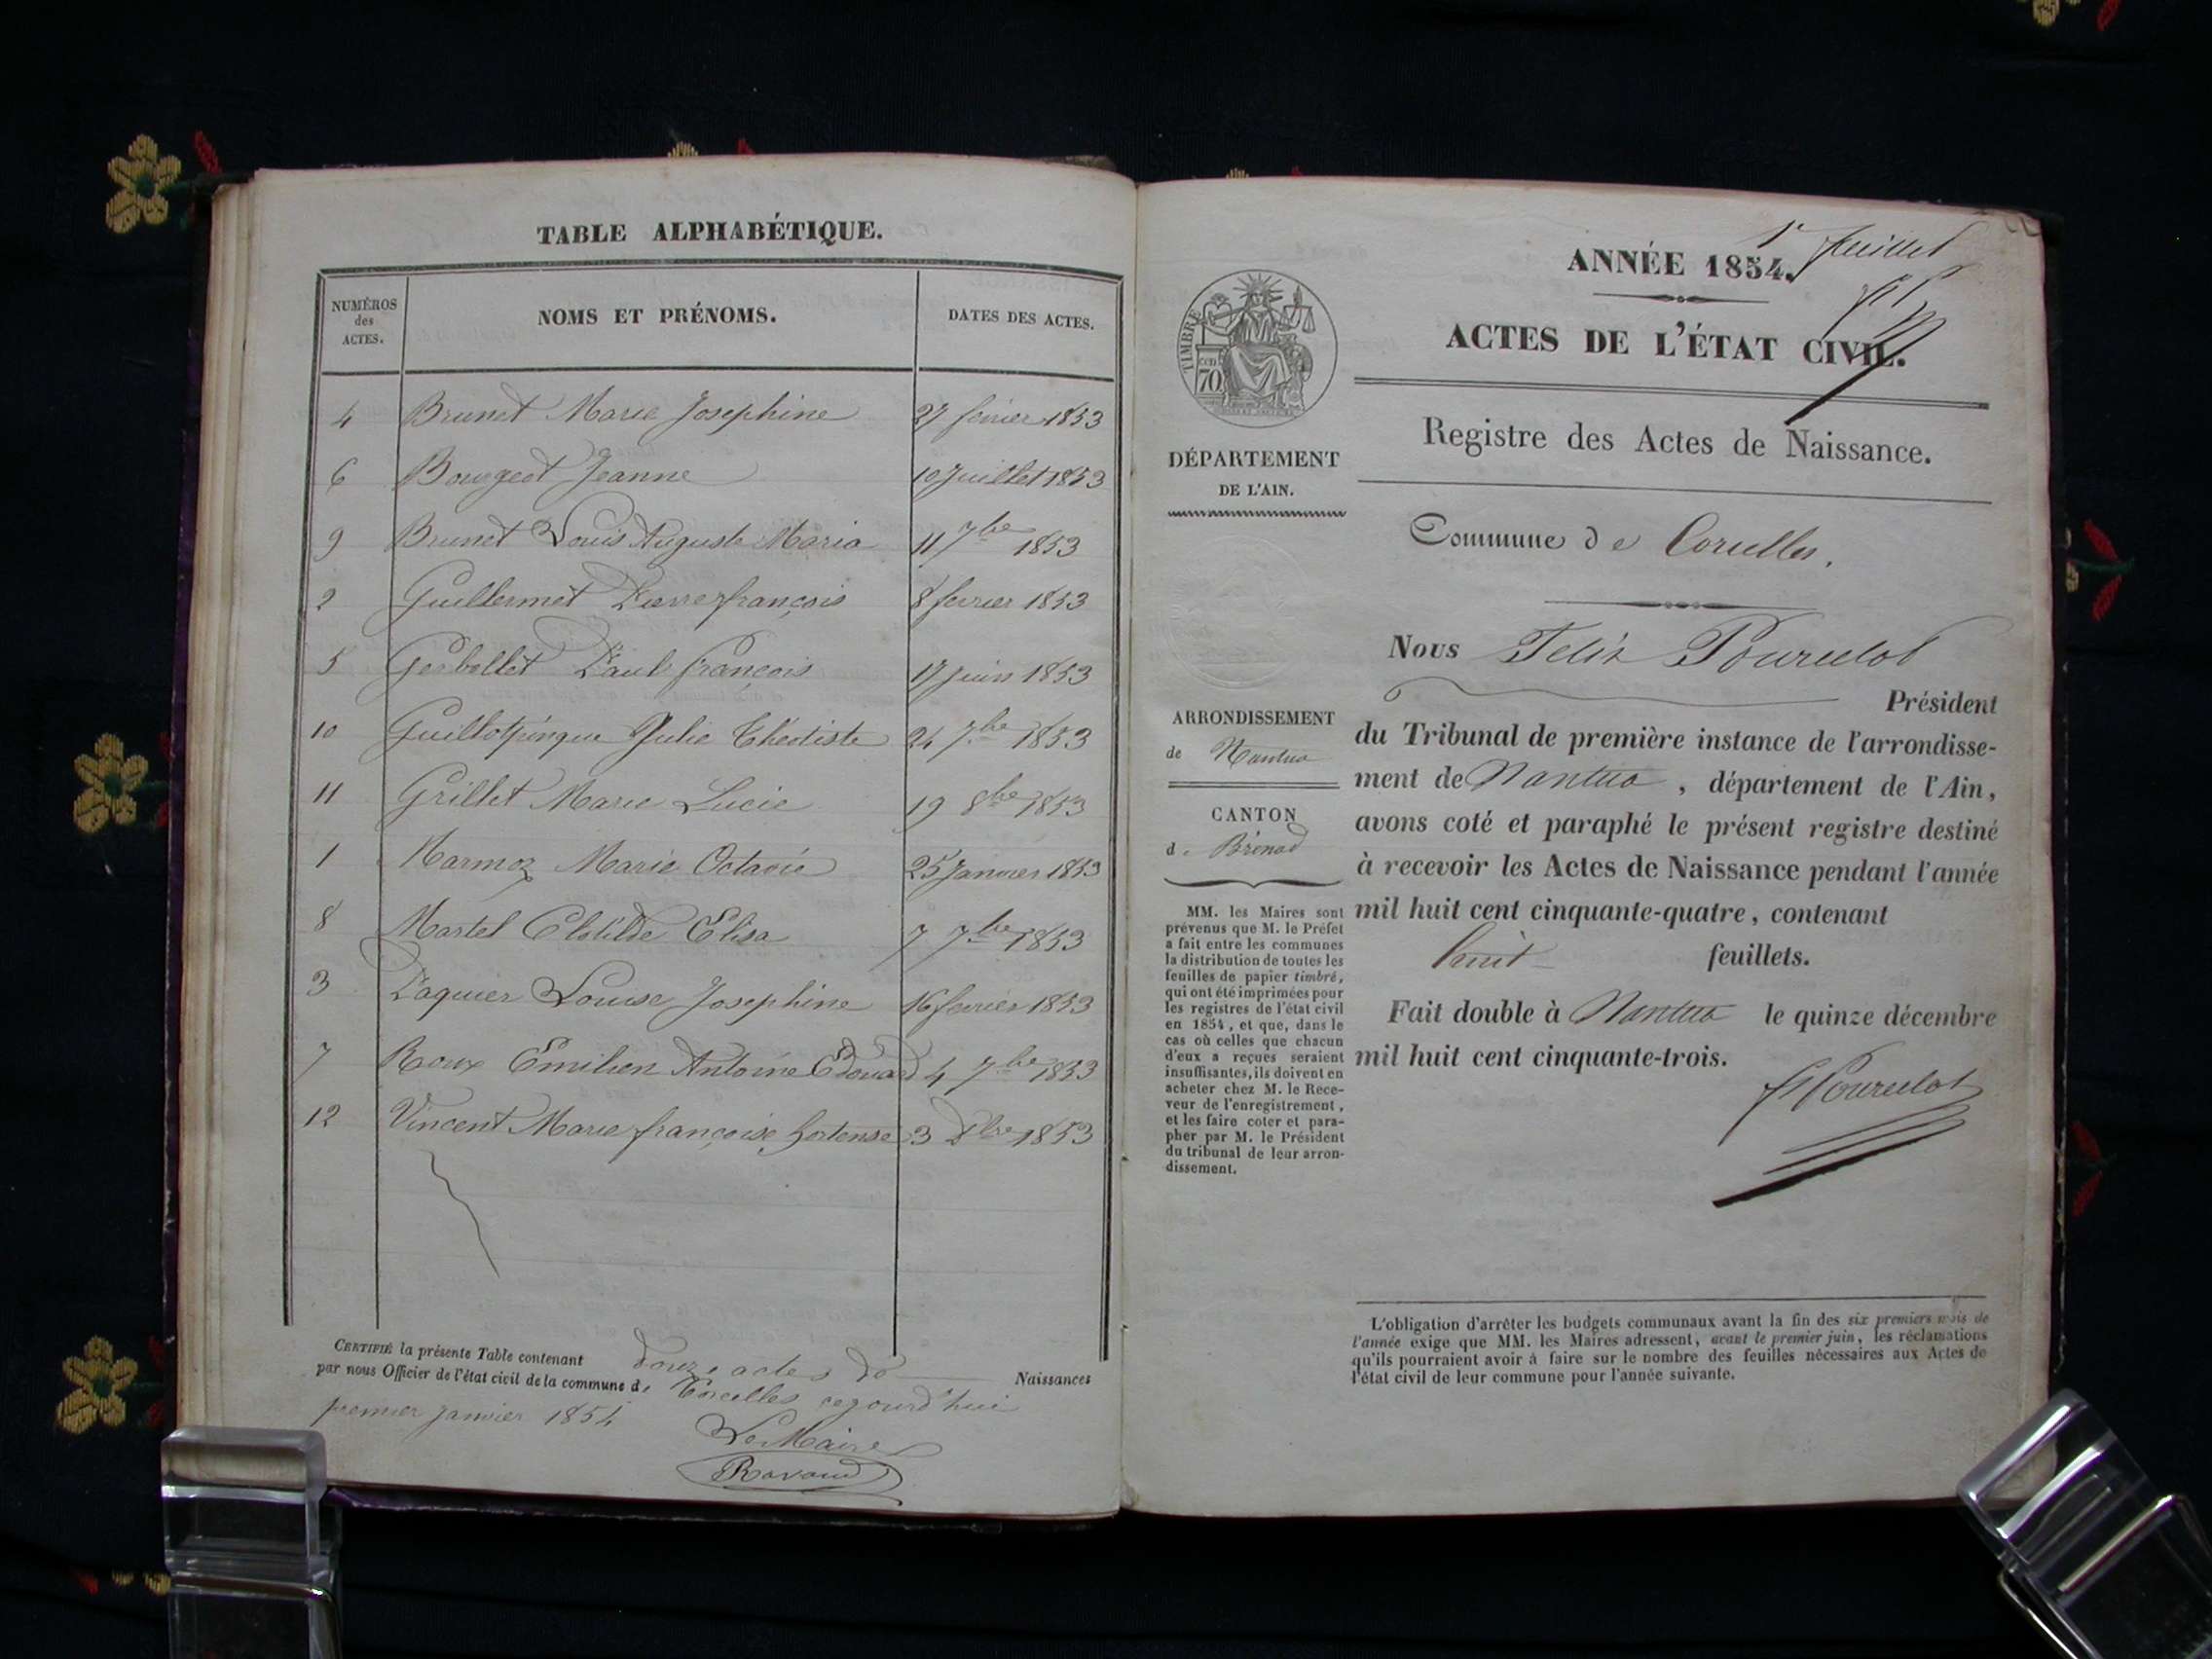 TABLE ALPHABÉTIQUE.
NUMÉROS des ACTES.
NOMS ET PRÉNOMS.
DATES DES ACTES.
4 Brunet Marie Josephine 27 fevrier 1853
6 Bourgeot Jeanne 10 Juillet 1853
9 Brunet Louis Auguste Maria 11 7bre 1853
2 Guillermet Pierre françois 8 fevrier 1853
5 Gerbollet Paul françois 17 juin 1853
10 Julie Théotiste 24 7bre 1853
11 Grillet Marie Lucie 19 8bre 1853
1 Marmoz Marie Octavie 25 Janvier 1853
8 Martel Clotilde Elisa 7 7bre 1853
3 Paquier Louise Josephine 16 fevrier 1853
7 Roux Emilien Antoine Edouard 4 7bre 1853
12 Vincent Marie françoise hortense 3 1853
CERTIFIÉ la présente Table contenant douze actes de Naissances
par nous Officier de l'état civil de la commune de Corcelles cejourd'hui
premier janvier 1854
Le Maire
Ravaud
1r feuillet
ANNÉE 1854.
ACTES DE L'ÉTAT CIVIL.
TIMBRE
70
DÉPARTEMENT
DE L'AIN.
ARRONDISSEMENT
de Nantua
CANTON
de Brénod
MM. les Maires sont
prévenus que M. le Préfet
a fait entre les communes
la distribution de toutes les
feuilles de papier timbré,
qui ont été imprimées pour
les registres de l'état civil
en 1854, et que, dans le
cas où celles que chacun
d'eux a reçues seraient
insuffisantes, ils doivent en
acheter chez M. le Rece-
veur de l'enregistrement,
et les faire coter et para-
pher par M. le Président
du tribunal de leur arron-
dissement.
Registre des Actes de Naissance.
Commune de Corcelles.
Nous Felix Pourcelot
Président
du Tribunal de première instance de l'arrondisse-
ment de Nantua, département de l'Ain,
avons coté et paraphé le présent registre destiné
à recevoir les Actes de Naissance pendant l'année
mil huit cent cinquante-quatre, contenant
huit feuillets.
Fait double à Nantua le quinze décembre
mil huit cent cinquante-trois.
f Pourcelot
L'obligation d'arrêter les budgets communaux avant la fin des six premiers mois de
l'année exige que MM. les Maires adressent, avant le premier juin, les réclamations
qu'ils pourraient avoir à faire sur le nombre des feuilles nécessaires aux Actes de
l'état civil de leur commune pour l'année suivante.